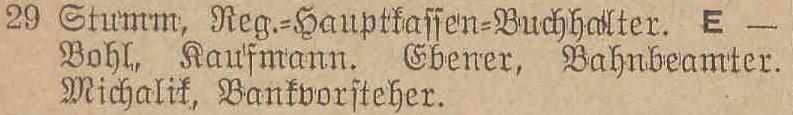 29 Stumm, Reg.=Hauptkassen=Buchhalter. E —
Bohl, Kaufmann. Ebener, Bahnbeamter.
Michalik, Bankvorsteher.